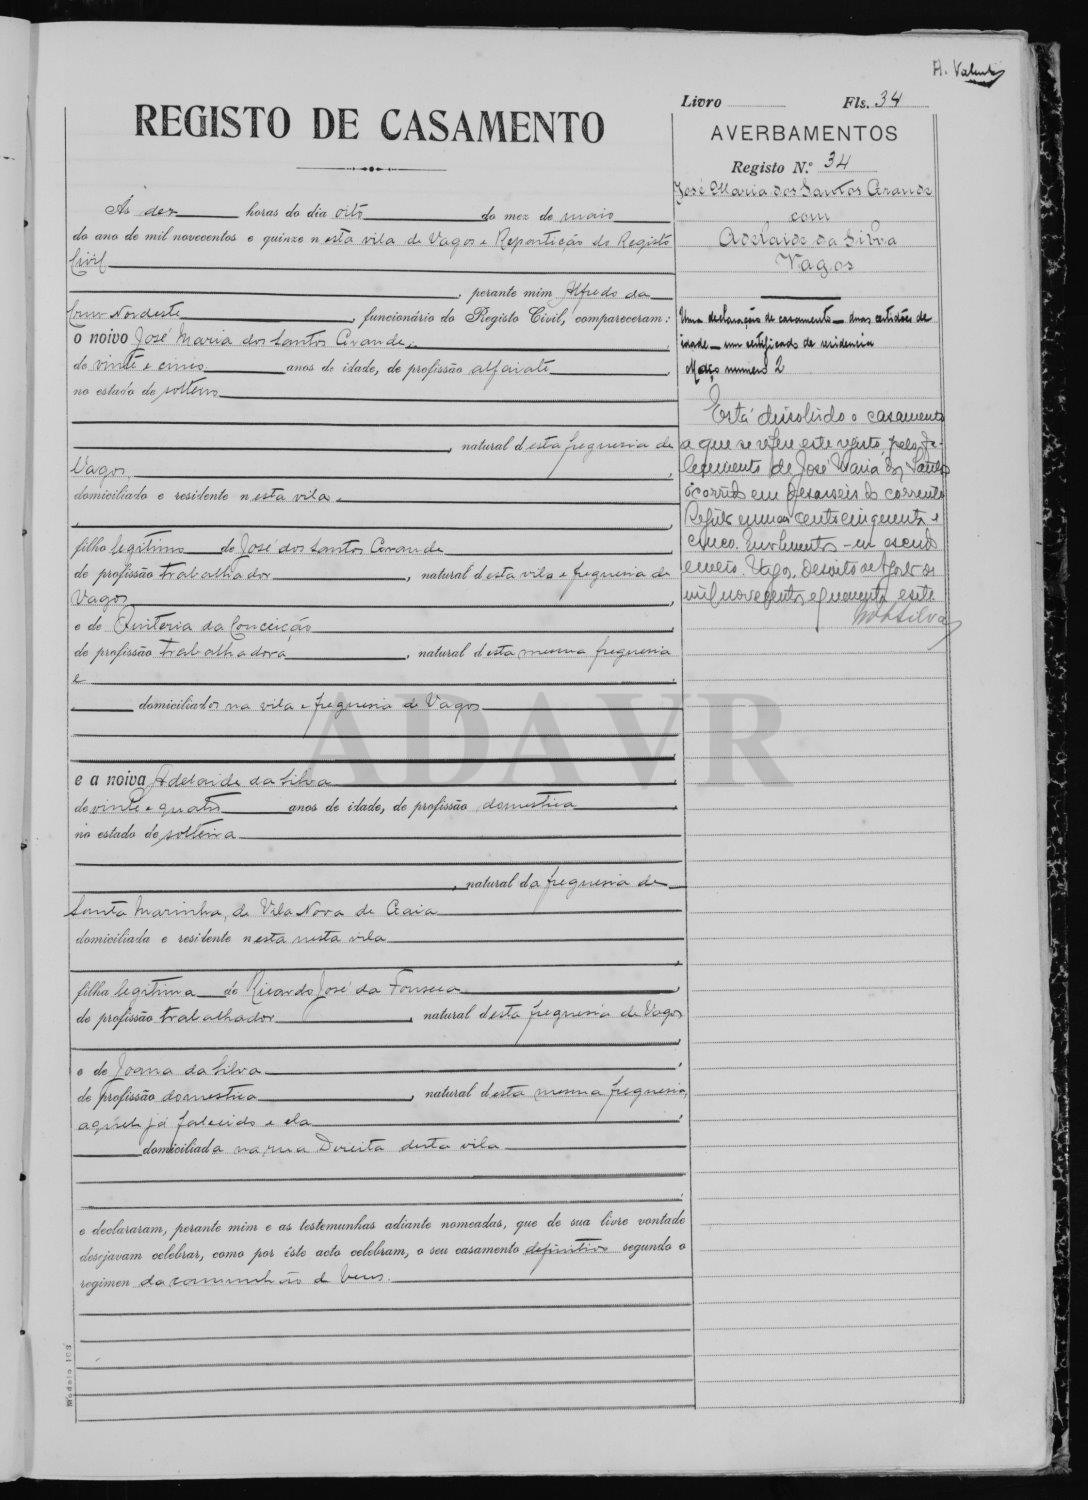 A. Valente
Livro Fls. 34
REGISTO DE CASAMENTO
AVERBAMENTOS
Registo N.º 34
José Maria dos Santos Grande
com
Adelaide da Silva
Vagos
Uma declaração de casamento — duas certidões de
idade — um certificado de residencia
Maço numero 2
Está dissolvido o casamento
a que se refere este registo, pelo fa-
lecimento de José Maria dos Santos
ocorrido em dezasseis do corrente
cento cinquenta e
cinco. Emolumentos — um escudo
e meio. Vagos, Dezoito de de
mil novecentos e quarenta e sete
Silva
Ás dez horas do dia oito do mez de maio
do ano de mil novecentos e quinze nesta vila de Vagos e Repartição do Registo
Civil
, perante mim Alfredo da
Nordeste, funcionário do Registo Civil, compareceram:
o noivo José Maria dos Santos Grande,
de vinte e cinco anos de idade, de profissão alfaiate,
no estado de solteiro
, natural desta freguesia de
Vagos,
domiciliado e residente nesta vila e
,
filho legitimo de José dos Santos Grande
de profissão trabalhador, natural desta vila e freguesia de
Vagos,
e de Quiteria da Conceição,
de profissão trabalhadora, natural desta mesma freguesia
e
domiciliados na vila e freguesia de Vagos
e a noiva Adelaide da Silva,
de vinte e quatro anos de idade, de profissão domestica,
no estado de solteira
, natural da freguesia de
Santa Marinha, de Vila Nova de Gaia
domiciliada e residente nesta nesta vila
,
filha legitima de Ricardo José da Fonseca,
de profissão trabalhador, natural desta freguesia de Vagos
,
e de Joana da Silva,
de profissão domestica, natural desta mesma freguesia,
aquele já falecido e ela
domiciliada na rua Direita desta vila
e declararam, perante mim e as testemunhas adiante nomeadas, que de sua livre vontade
desejavam celebrar, como por êste acto celebram, o seu casamento definitivo segundo o
regimen da communhão de bens.
Modelo 103
ADAVR